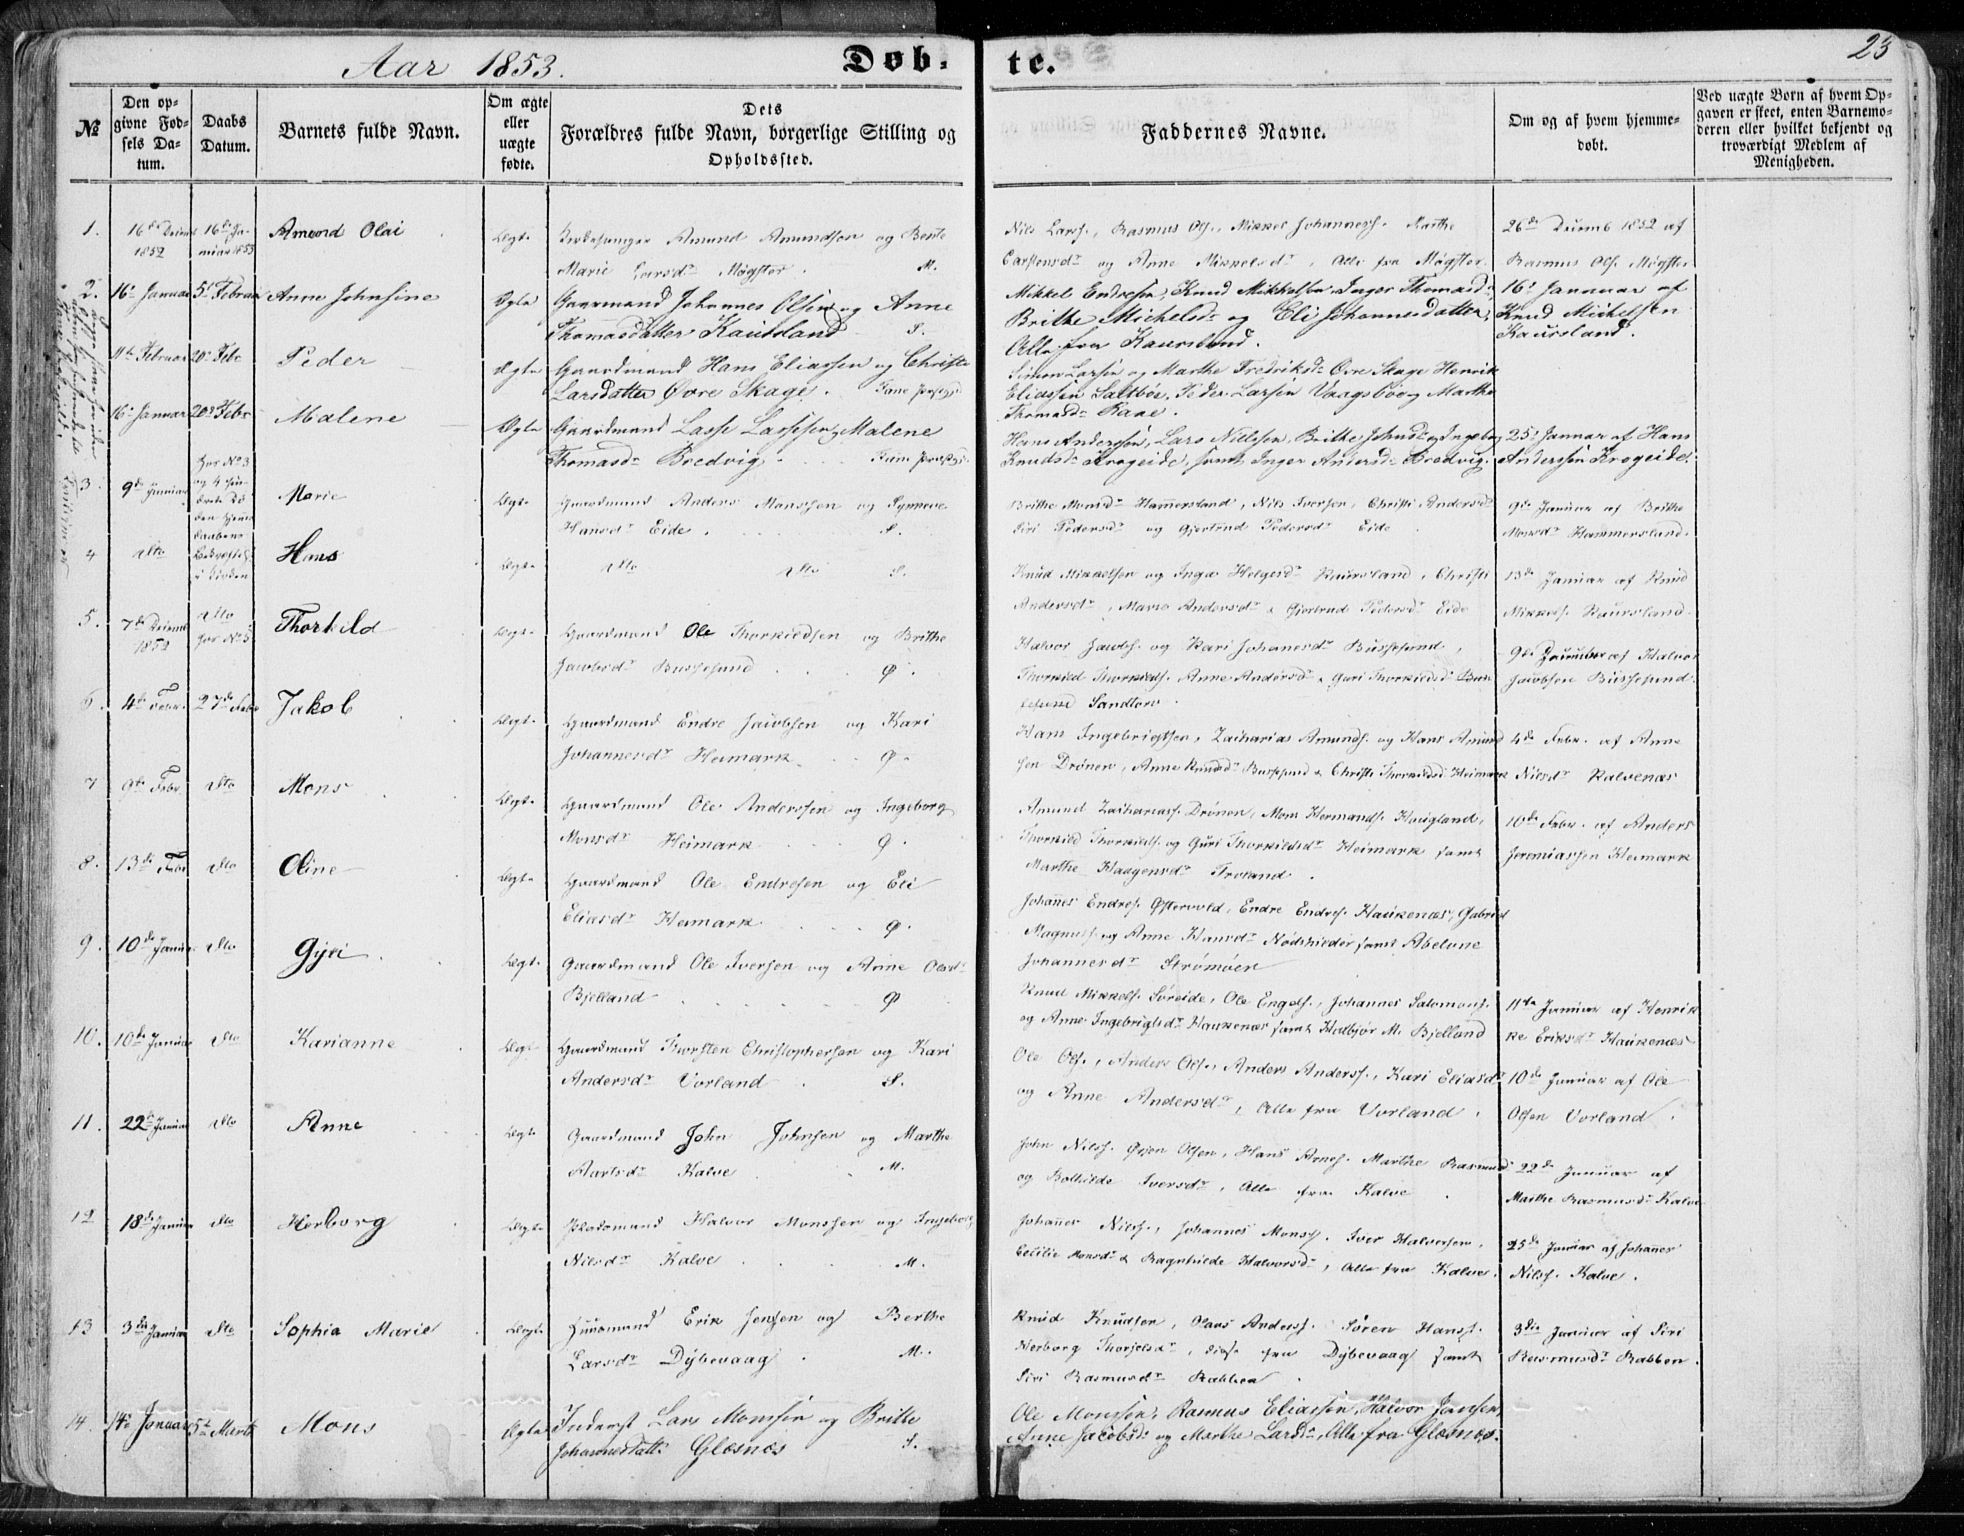 Aar 1853.
Døb-
te.
23
№
Den op-
givne Fød-
sels Da-
tum.
Daabs
Datum.
Barnets fulde Navn.
Om ægte
eller
uægte
fødte.
Dets
Forældres fulde Navn, borgerlige Stilling og
Opholdssted.
Faddernes Navne.
Om og af hvem hjemme-
døbt.
Ved uægte Børn af hvem Op-
gaven er skeet, enten Barnemo-
deren eller hvilket bekjendt og
troværdigt Medlem af
Menigheden.
1.
16de Decemb
1852
16de Ja-
nuar 1853
Amund Olai
Ægte
Amund Amundsen og Bente
Marie Larsdr Møgster. M.
Nils Larss., Rasmus Ols., Mikkel Johanness. Marthe
Carstensdr og Anne Mikkelsdr, Alle fra Møgster
26de Decemb 1852 af
Rasmus Ols. Møgster
2.
16. Januar
5t Februar
Anne Johnsine
Ægte
Gaardmand Johannes Olsen og Anne
Thomasdatter Kausland S.
Mikkel Endresen, Knud Mikkelsen, Inger Thomasdr
Brithe Michelsdr og Eli Johannesdatter,
Alle fra Kausland.
16. Januar af
Knud Michelsen
Kausland.
11te Februar
20. Febr
Peder
Ægte
Gaardmand Hans Eliassen og Christi
Larsdatter Øvre Skage.
Simon Larsen og Marthe Fredriksdr Øvre Skage Henrik
Eliassen Saltbøe, Peder Larsen Vaagsbø og Marthe
Thomasdr Rane.
16. Januar
20. Febr
Malene
Ægte
Gaardmand Lasse Lassesen og Malene
Thomasdr Bredvig
Hans Anderssen, Lars Nielsen, Brithe Johnsdr og Ingebor
Knudsdr Krogeide, samt Inger Andersdr Bredvig.
25. Januar af Hans
Anderssen Krogeide.
3
9de Januar
for No 3
og 4
Marie
Ægte
Gaardmand Anders Monssen og Synneve
Hansdr Eide. S.
Brithe Monsdr Hammersland, Nils Iversen, Christi Andersdr
Siri Pedersdr og Gjertrud Pedersdr Eide
9de Januar af Brithe
Monsdr Hammersland.
4
dto
Hans
Ægte
dto dto S.
Knud Mikkelsen og Inga Helgesdr Kausland, Christi
Andersdr, Marie Andersdr & Gjertrud Pedersdr Eide
13de Januar af Knud
Mikkels. Kausland.
5.
7de Decemb
1852
dto
for No 5
Thorkild
Ægte
Gaardmand Ole Thorkildsen og Brithe
Jacobsdr Bussesund Ø.
Halvor Jacobs. og Kari Johannesdr Bussesund,
Thorkild Thorkilds. Anne Andersdr & Guri Thorkildsd Bus
sesund Sandtorv.
9de December af Halvor
Jacobsen Bussesund.
6.
4de Febr.
27de Febr
Jakob
Ægte
Gaardmand Endre Jacobsen og Kari
Johannesdr Heimark Ø.
Hans Ingebrigtsen, Zacharias Amunds. og Hans Amund
sen Drönen, Anne Knudsdr Bussesund & Christi Thorkildsd Heimark
4de Febr. af Anne
Nilsdr Kalvenæs
7
9de Febr.
dto
Mons
Ægte
Gaardmand Ole Anderssen og Ingeborg
Monsdr Heimark Ø.
Amund Zachariass. Drönen, Mons Hermands. Haugland,
Thorkild Thorkilds. og Guri Thorkildsdr Heimark samt
Marthe Haagensdr Troland.
10de Febr. af Anders
Jeremiassen Heimark
8.
13de Febr
dto
Oline
Ægte
Gaardmand Ole Endresen og Eli
Eliasdr Heimark Ø.
Johannes Endres. Østervold, Endre Endres. Haukenæs, Gabriel
Magnuss. og Anne Hansdr samt Abelone
Johannesdr Strømøen
9.
10de Januar
dto
Gyri
Ægte
Gaardmand Ole Iversen og Anne Olsdr
Bjelland Ø
Knud Mikkels. Søreide, Ole Engels., Johannes Salomons.
og Anne Ingebrigtsdr Haukenæs samt Halbjør M. Bjelland
11te Januar af Henrik
ke Eriksdr Haukenæs
10.
10de Januar
dto
Karianne
Ægte
Gaardmand Thorsten Christophersen og Kari
Andersdr Vorland S.
Ole Ols., Anders Ols., Anders Anderss., Kari Eliasdr
og Anne Andersdr, Alle fra Vorland.
10de Januar af Ole
Olsen Vorland.
11.
22de Januar
dto
Anne
Ægte
Gaardmand John Johnsen og Marthe
Kalve M.
John Nilss. Olsen, Hans Marthe Rasmusd
og Bothilde Iversdr, Alle fra Kalve.
22de Januar af
Marthe Rasmusdr Kalve
12
18de Januar
dto
Herborg
Ægte
Pladsmand Halvor Monssen og Ingeborg
Nilsdr Kalve M.
Johannes Nilss., Johannes Monss. Iver Halversen,
Cecilie Monsdr & Ragnhilde Halvorsdr, Alle fra Kalve.
25de Januar af Johannes
Nilss. Kalve.
13
3die Januar
dto
Sophia Marie
Ægte
Huusmand Erik Jensen og Berthe
Larsdr Dybevaag M.
Knud Knudsen, Olaus Anderss. Sören Hanss.
Herborg Thorjelsdr, disse fra Dybevaag samt
Siri Rasmusdr Rabben.
3die Januar af Siri
Rasmusdr Rabben.
14.
14. Januar
5t Marts
Mons
Ægte
Inderst Lars Monssen og Brithe
Johannesdatt. Glesnæs S.
Ole Monssen, Rasmus Eliassen, Halvor Jansen,
Anne Jacobsd. og Marthe Larsdr, Alle fra Glesnæs.